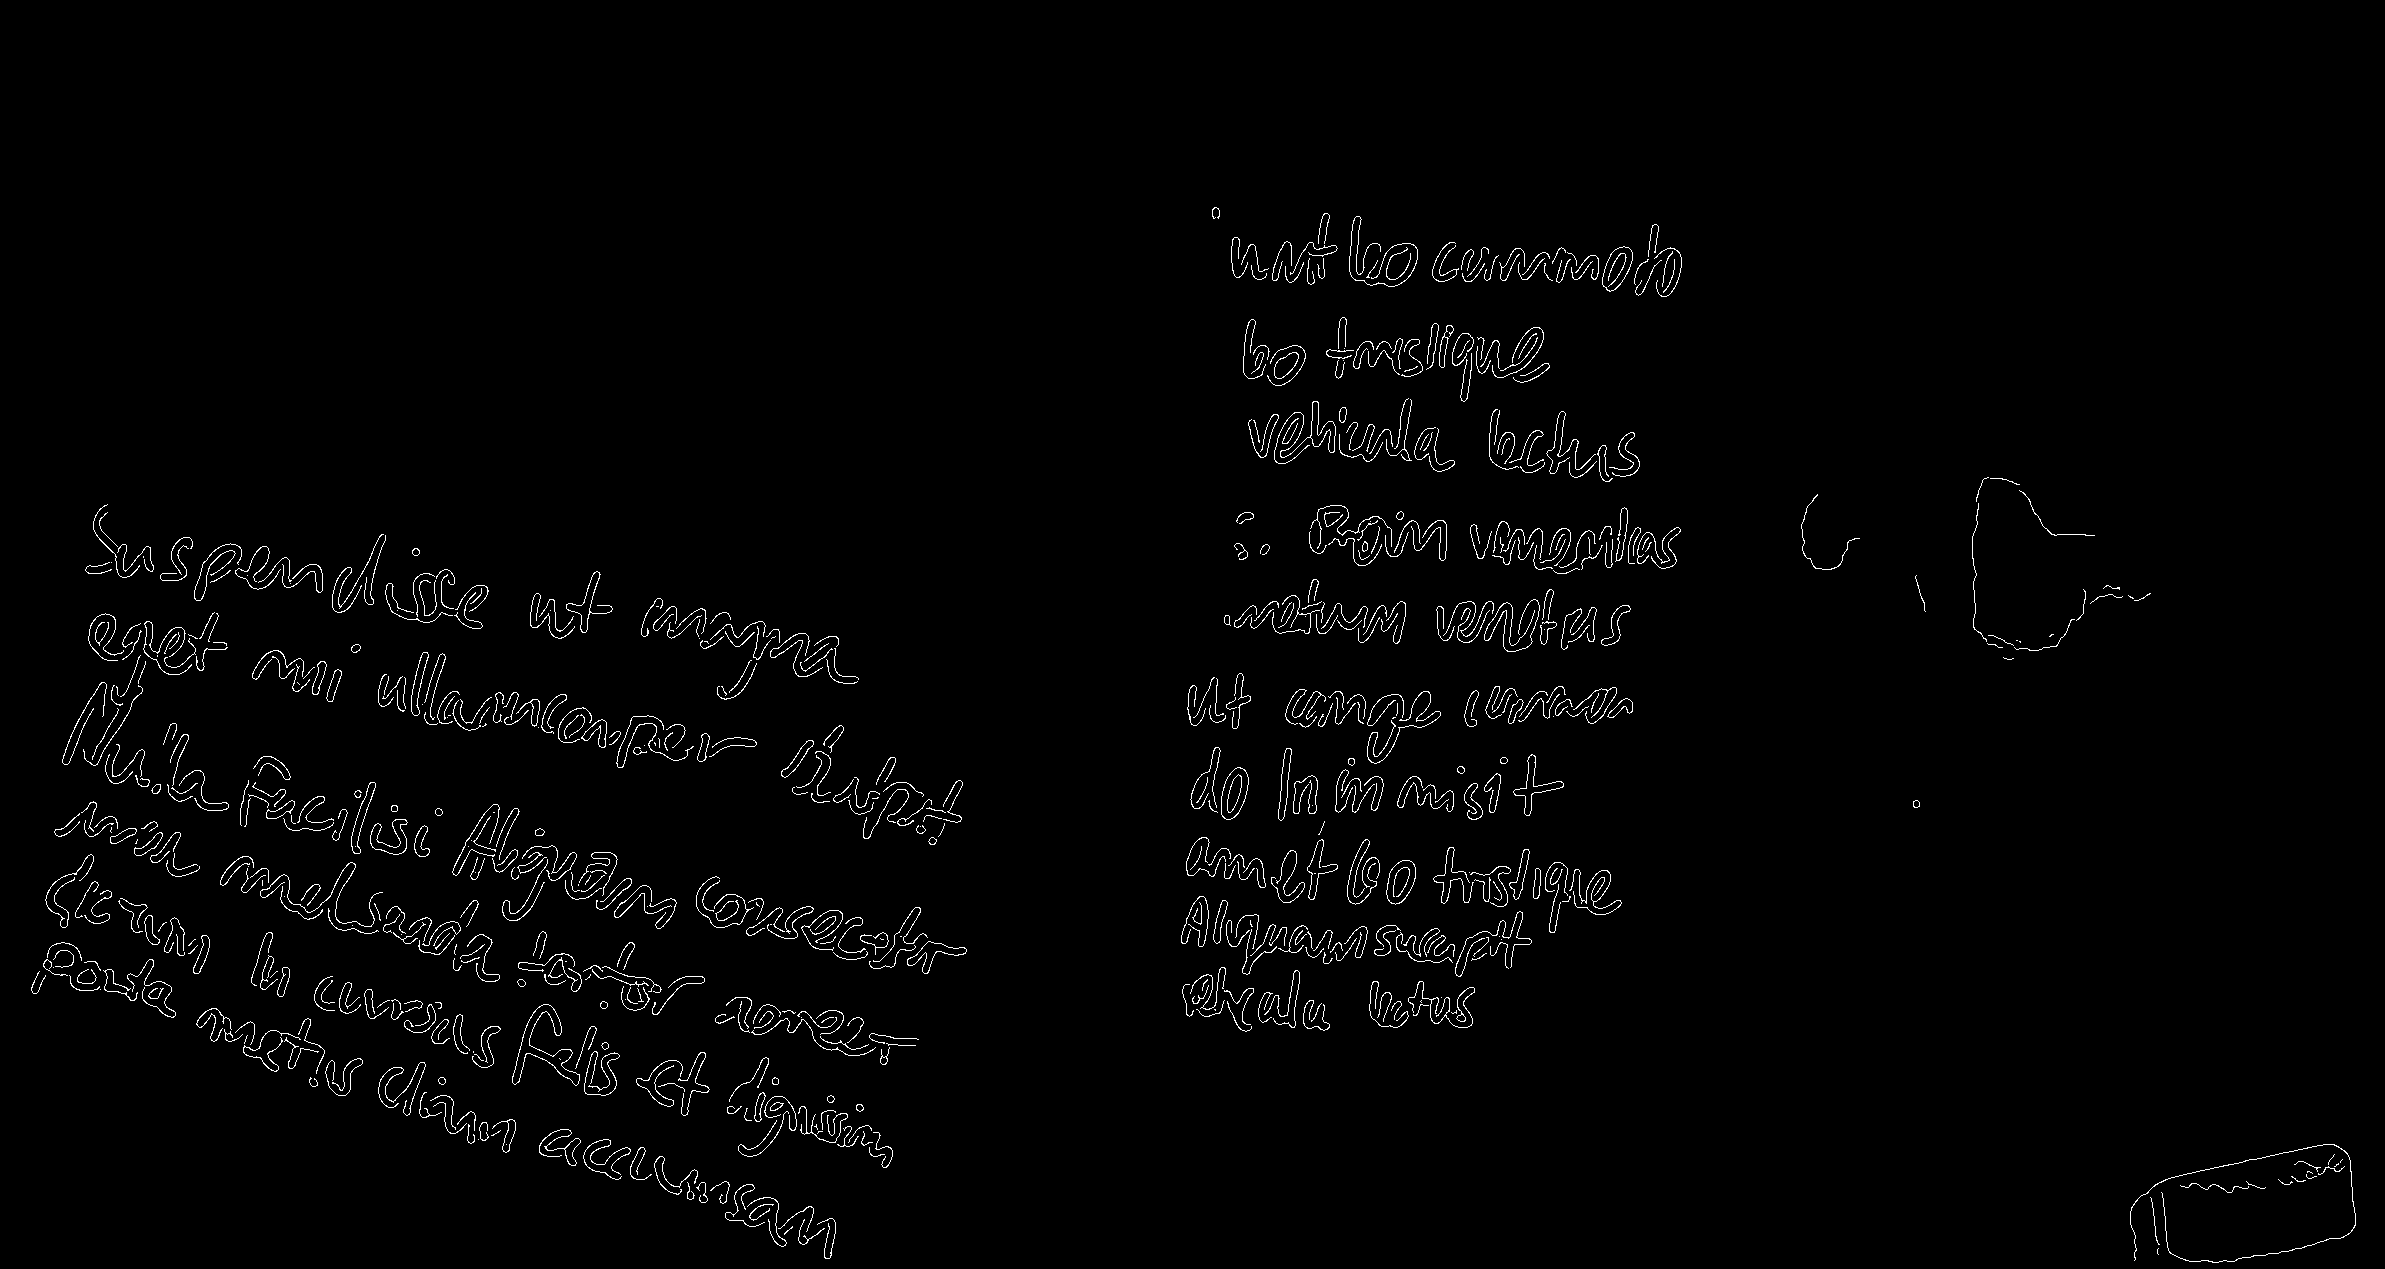 Suspendisse ut magna
eget mi ullamcorper
Nulla Facilisi Aliquam consectetur
malesuada tortor
In cursus felis et dignissim
porta metus diam accumsan
leo commodo
leo tristique
vehicula lectus
Proin
ut congue
do In in mi sit
amet leo tristique
Aliquam suscipit
vehicula lectus